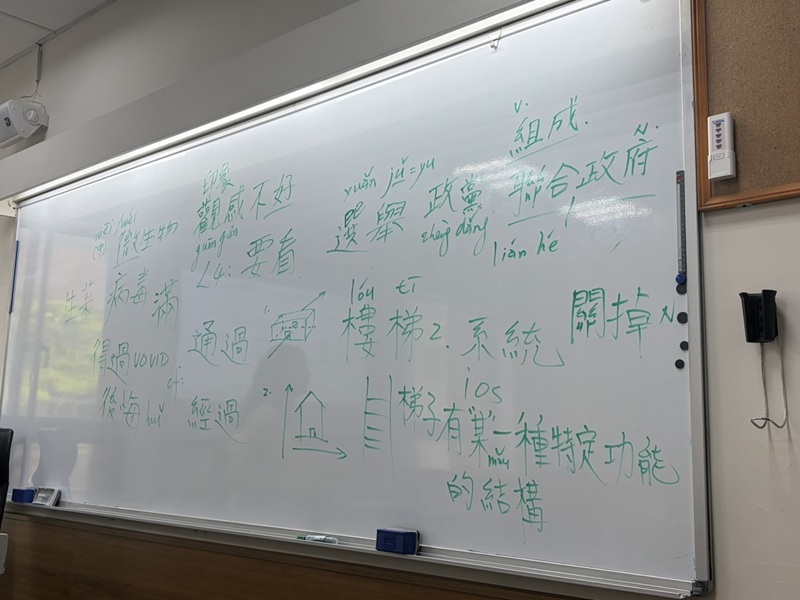 印象
觀感不好
guān gǎn
L4: 要看
wēi/wéi
微生物
生菜 病毒 滿
得過 COVID
後悔 huǐ
通過
cf: 經過
1.
2.
xuǎn jǔ=yu
選舉
政黨
zhèng dǎng
v.
組成.
N.
聯合政府
lián hé
lóu tī
樓梯
2. 系統
ios
關掉
梯子
有"某"一種特定功能
mǒu
的結構